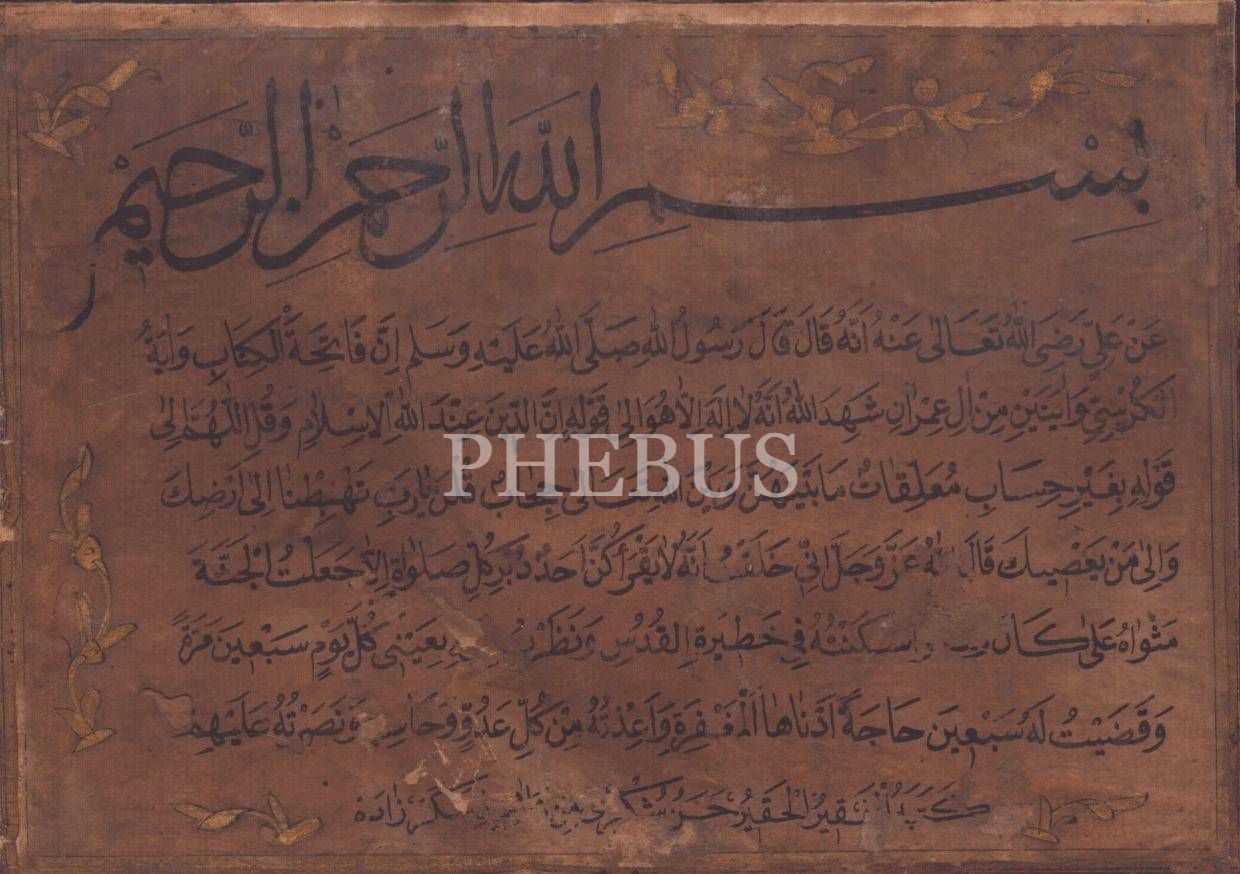 بِسْمِ اللهِ الرَّحْمٰنِ الرَّحِيْمِ
عَنْ عَلِيٍّ رَضِيَ اللهُ تَعَالٰى عَنْهُ اَنَّهُ قَالَ قَالَ رَسُولُ اللهِ صَلَّى اللهُ عَلَيْهِ وَسَلم اِنَّ فَاتِحَةَ الْكِتَابِ وَاٰيَةُ
الْكُرْسِيِّ وَاٰيَتَيْنِ مِنْ اٰلِ عِمْرَانِ شَهِدَ اللهُ اَنَّهُ لَا اِلٰهَ اِلَّا هُوَ اِلٰى قَوْلِهِ اِنَّ الدِّينَ عِنْدَ اللهِ الْاِسْلَام وَقُلِ اللّٰهُمَّ اِلٰى
PHEBUS
قَوْلِهِ بِغَيْرِ حِسَابِ مُعَلَّقَاتٌ مَا بَيْنَهُنَّ وَبَيْنَ حِجَابٌ قُلْنَ يَارَبِّ تَهْبِطُنَا اِلٰى اَرْضِكَ
وَاِلٰى مَنْ يَعْصِيكَ قَالَ عَزَّ وَجَلَّ اِنِّي اَنَّهُ لَا يَقْرَأُكُنَّ اَحَدٌ دُبُرَ كُلِّ صَلٰوةٍ اِلَّا جَعَلْتُ الْجَنَّةَ
مَثْوَاهُ عَلٰى كَانَ اَسْكَنْتُهُ فِي حَظِيرَةِ الْقُدُسِ وَنَظَرْتُ بِعَيْنِي كُلَّ يَوْمٍ سَبْعِينَ مَرَّةً
وَقَضَيْتُ لَهُ سَبْعِينَ حَاجَةً اَدْنَاهَا الْمَغْفِرَةِ وَاَعِذْتُهُ مِنْ كُلِّ عَدُوٍّ وَحَاسِدٍ وَنَصَرْتُهُ عَلَيْهِمْ
كَتَبَهُ الْفَقِيرُ الْحَقِيرُ زَادَه